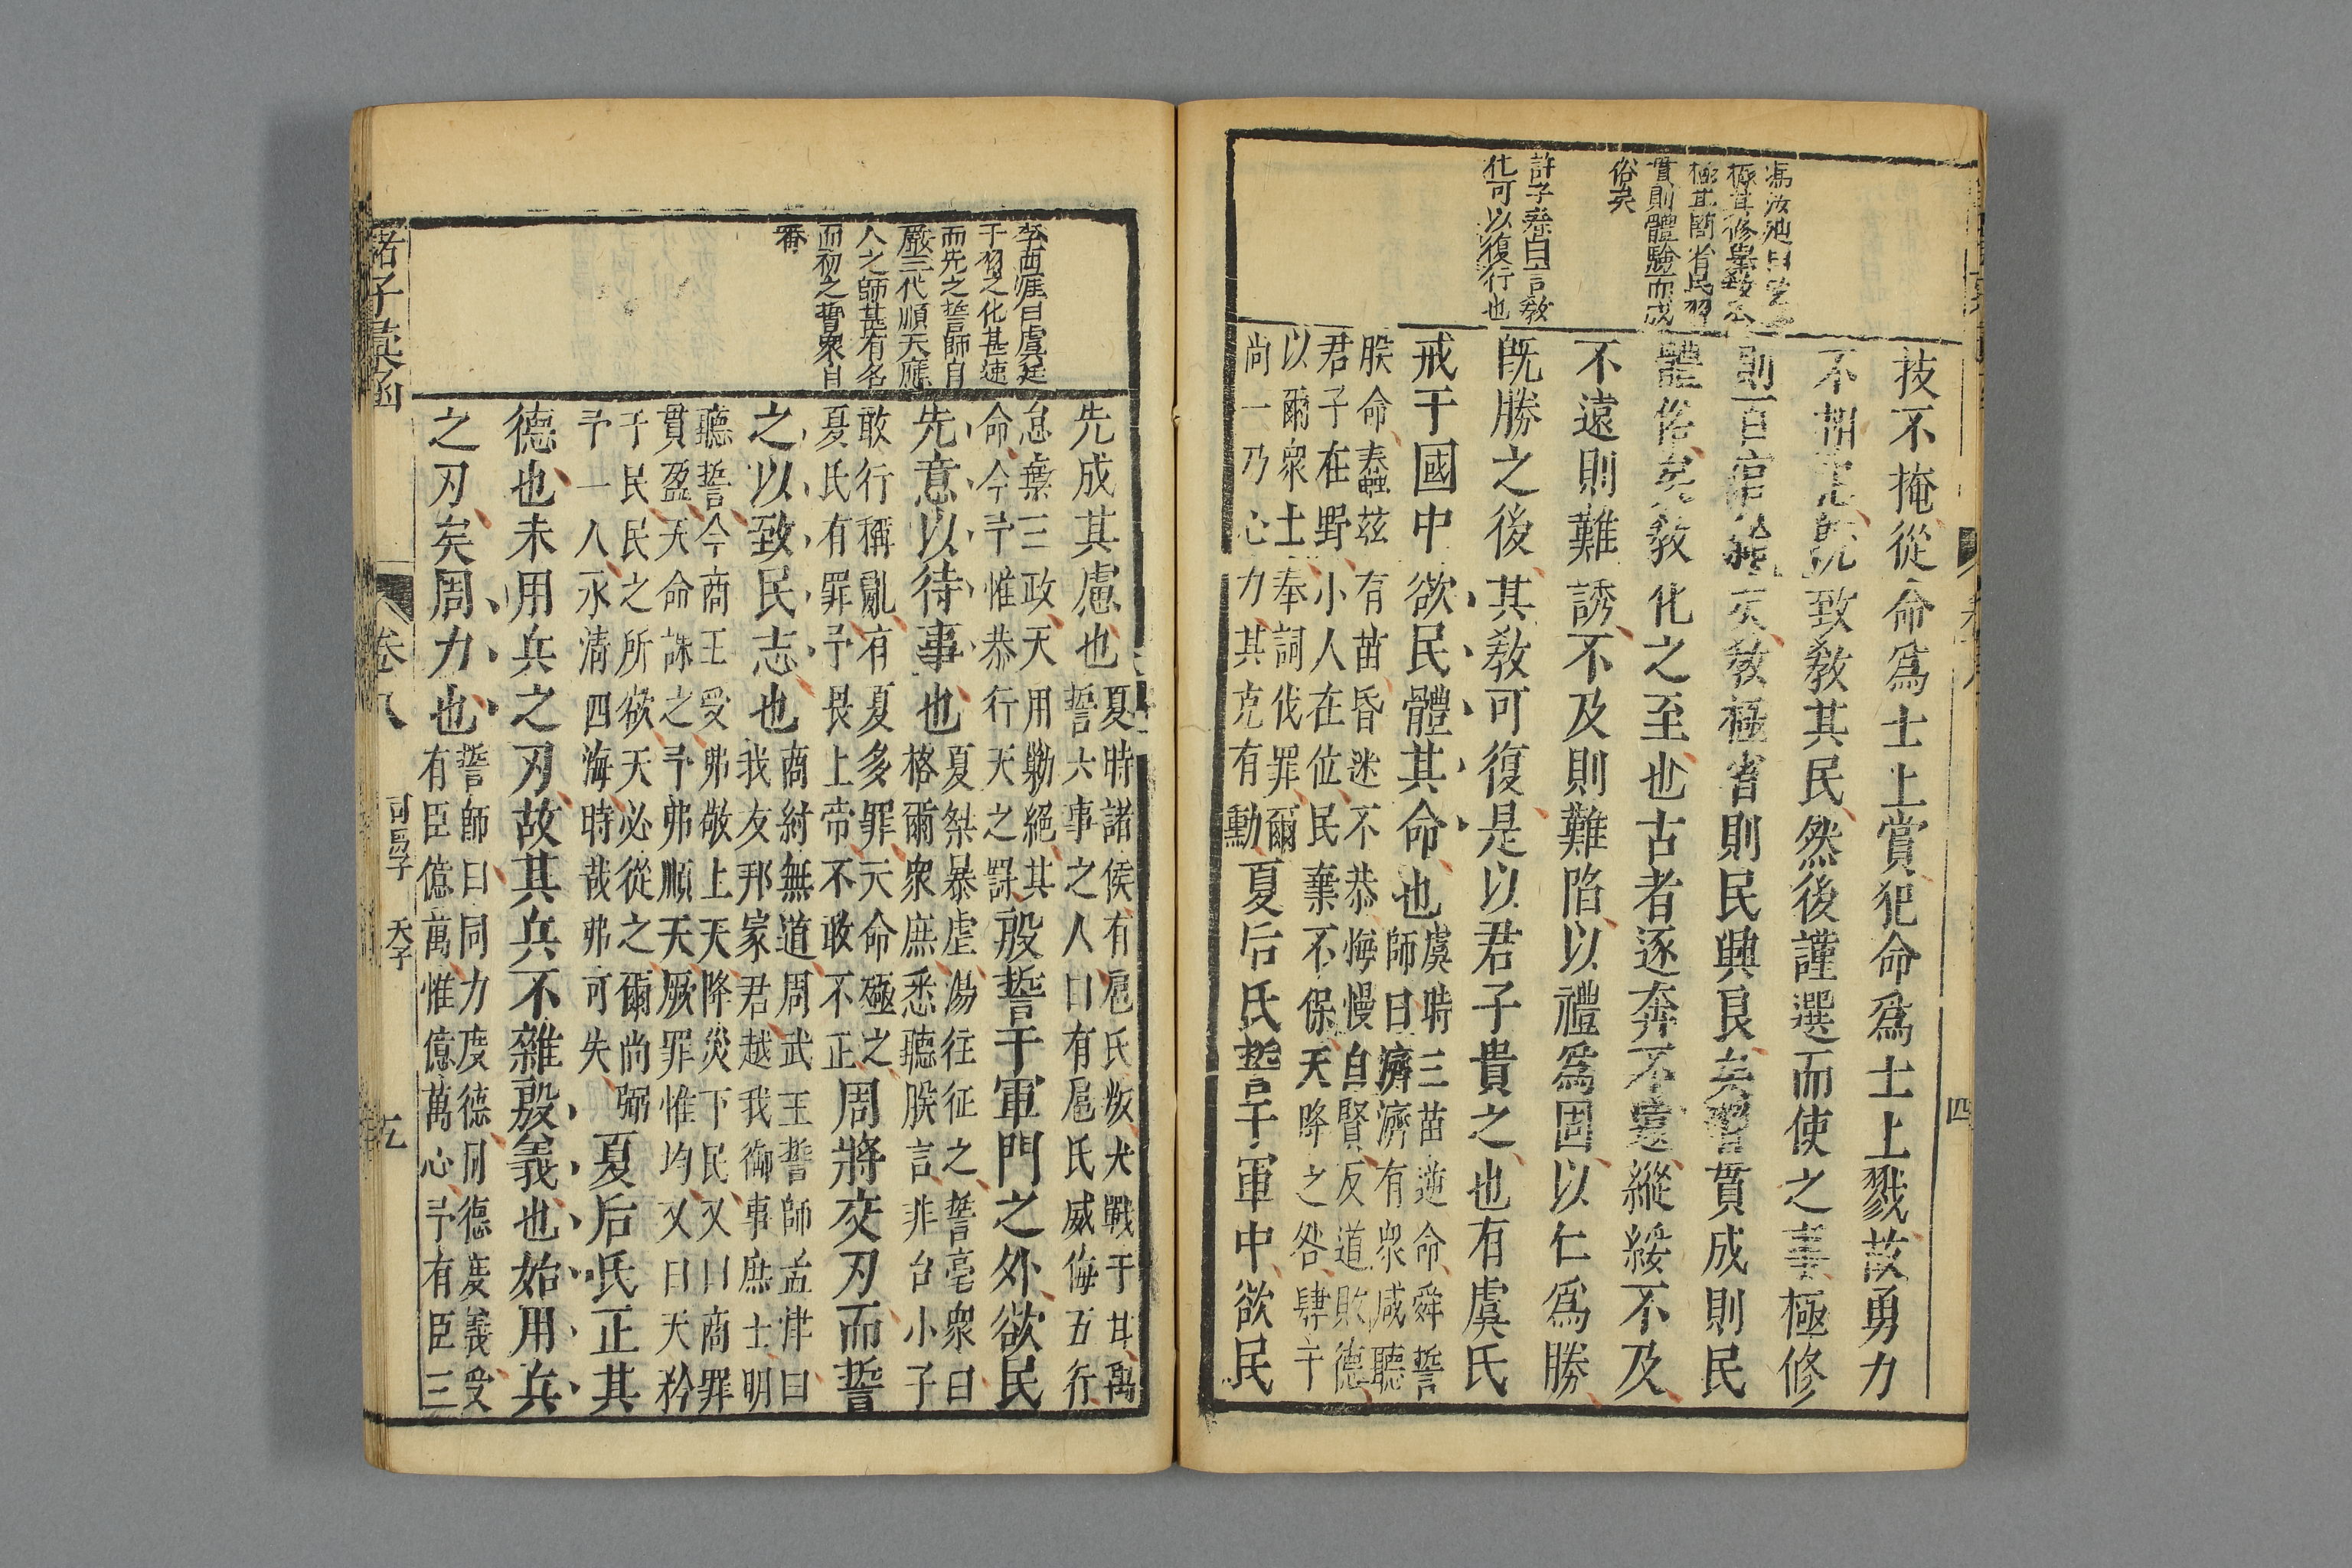 馮汝弼曰
極其修舉
極其簡省民習
貫則體驗而成
俗矣
許子春曰言教
化可以復行也
技不掩從命爲士上賞犯命爲士上戮故勇力
不相既致教其民然後謹選而使之事極修
則百官矣教極省則民興良矣習貫成則民
體俗矣教化之至也古者逐奔不遠縱綏不及
不遠則難誘不及則難陷以禮爲固以仁爲勝
既勝之後其教可復是以君子貴之也有虞氏
戒于國中欲民體其命也
虞時三苗逆命舜誓
師曰濟濟有衆咸聽
朕命蠢茲有苗昏迷不恭悔慢自賢反道敗德
君子在野小人在位民棄不保天降之咎肆予
以爾衆士奉詞伐罪爾
尚一乃心力其克有勳
夏后氏誓于軍中欲民
四
李西涯曰虞廷
干羽之化甚速
而先之誓師自
嚴三代順天應
人之師甚有名
而初之誓衆自
先成其慮也
夏時諸侯有扈氏叛大戰于甘禹
誓六事之人曰有扈氏威侮五行
怠棄三政天用勦絕其
命今予惟恭行天之罰
殷誓于軍門之外欲民
先意以待事也
夏桀暴虐湯往征之誓亳衆曰
格爾衆庶悉聽朕言非台小子
敢行稱亂有夏多罪天命殛之
夏氏有罪予畏上帝不敢不正
周將交刃而誓
之以致民志也
商紂無道周武王誓師孟津曰
我友邦家君越我御事庶士明
聽誓今商王受弗敬上天降災下民又曰商罪
貫盈天命誅之予弗順天厥罪惟均又曰天矜
于民民之所欲天必從之爾尚弼
予一人永清四海時哉弗可失
夏后氏正其
德也未用兵之刃故其兵不雜殷義也始用兵
之刃矣周力也
誓師曰同力度德同德度義受
有臣億萬惟億萬心予有臣三
諸子彙函
卷八
司馬子
天子
五